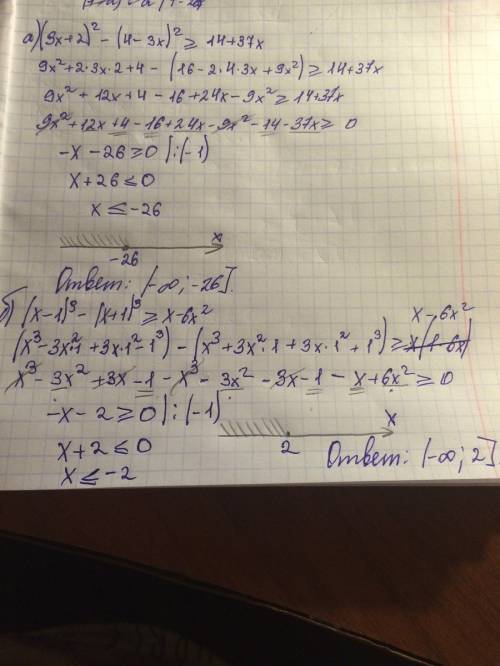 а) (9x+2)² - (4-3x)² ≥ 14+37x
9x²+2·3x·2+4 - (16-2·4·3x+9x²) ≥ 14+37x
9x² + 12x+4 - 16 +24x - 9x² ≥ 14+37x
9x²+12x+4-16+24x-9x²-14-37x ≥ 0
-x-26 ≥ 0 |:(-1)
x+26 ≤ 0
x ≤ -26
x
-26
Ответ: (-∞; -26].
б) (x-1)³ - (x+1)³ ≥ x-6x²
x-6x²
(x³-3x²·1+3x·1²-1³) - (x³+3x²·1+3x·1²+1³) ≥ x(1-6x)
x³-3x²+3x-1-x³-3x²-3x-1-x+6x² ≥ 0
-x-2 ≥ 0 |:(-1)
x
x+2 ≤ 0
2
Ответ: (-∞; 2]
x ≤ -2